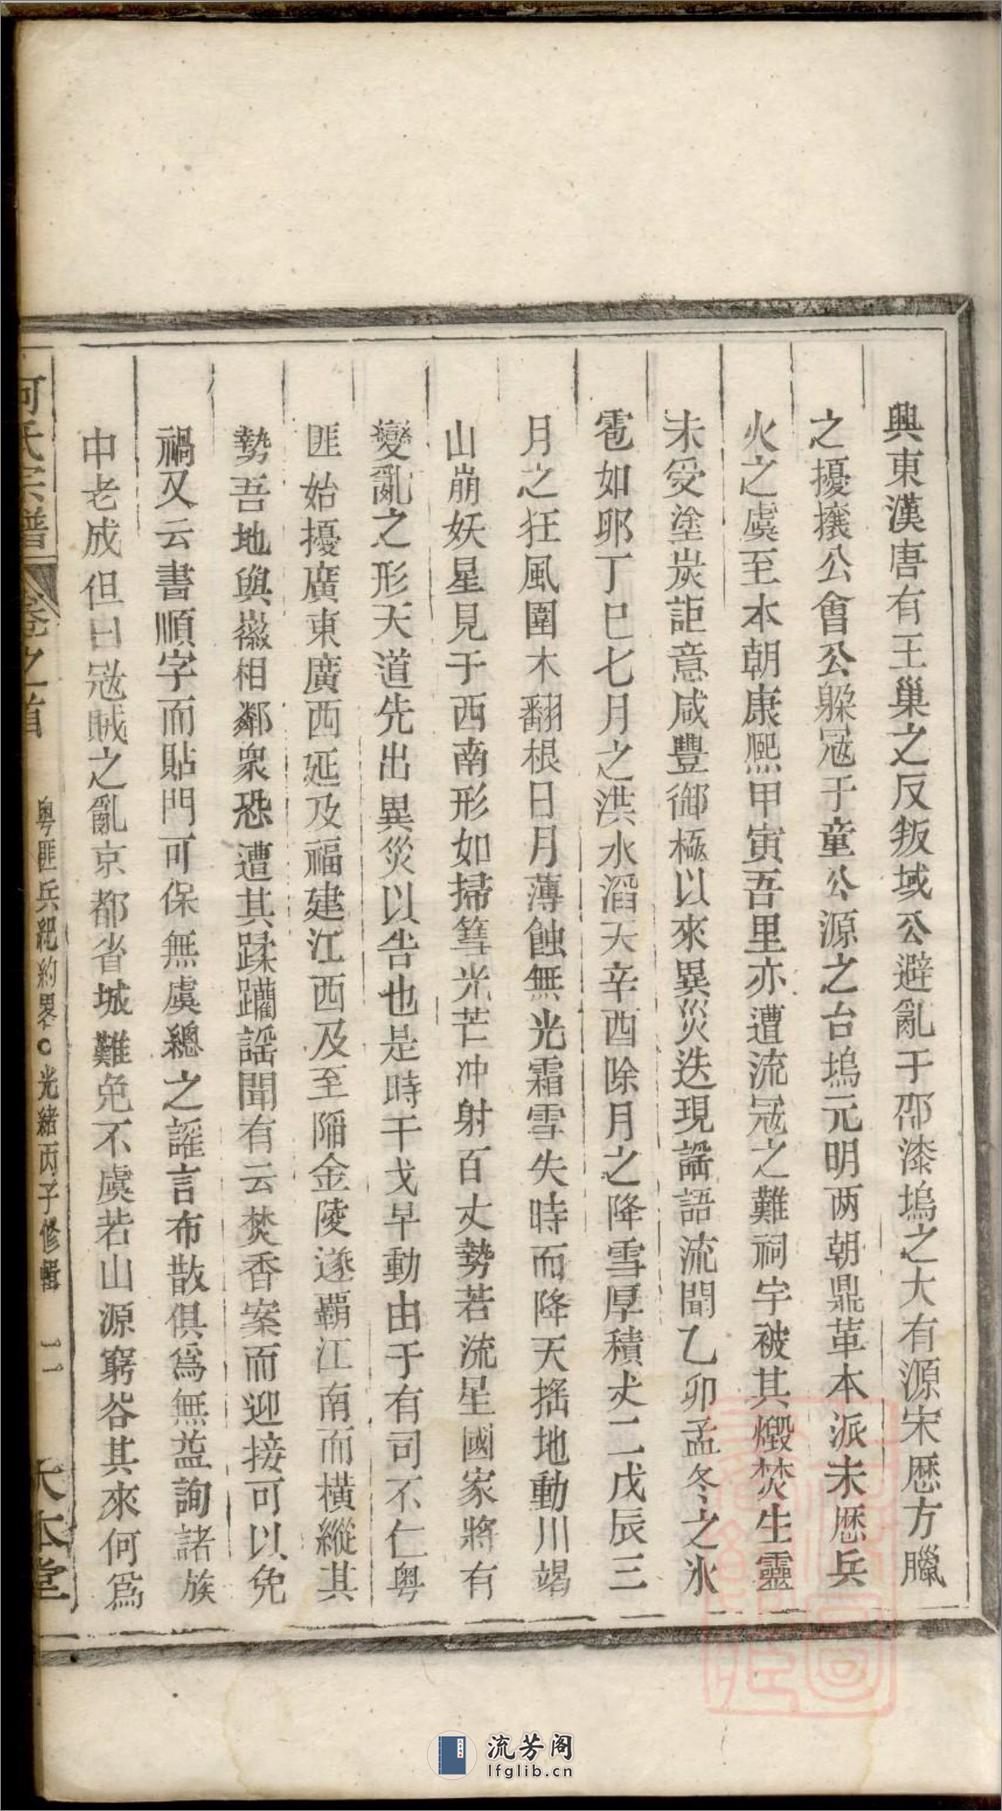 興東漢唐有王巢之反叛域公避亂于邵漆塢之大有源宋厯方臘
之擾攘公會公躲冦于童公源之台塢元明两朝鼎革本派未厯兵
火之虞至本朝康熙甲寅吾里亦遭流冦之難祠宇被其燬焚生靈
未受塗炭詎意咸豐御極以來異災迭現謡語流聞乙卯孟冬之氷
雹如卵丁巳七月之洪水滔天辛酉除月之降雪厚積丈二戊辰三
月之狂風圍木翻根日月薄蝕無光霜雪失時而降天揺地動川竭
山崩妖星見于西南形如掃篲光芒冲射百丈勢若流星國家將有
變亂之形天道先出異災以告也是時干戈早動由于有司不仁粤
匪始擾廣東廣西延及福建江西及至陷金陵遂覇江南而橫縱其
勢吾地與徽相鄰衆恐遭其蹂躪謡聞有云焚香案而迎接可以免
禍又云書順字而貼門可保無虞總之謡言布散俱爲無益詢諸族
中老成但曰冦賊之亂京都省城難免不虞若山源窮谷其來何爲
何氏宗譜 卷之首 粤匪兵紀約畧 光緒丙子修輯 二 大本堂
流芳阁
lfglib.cn